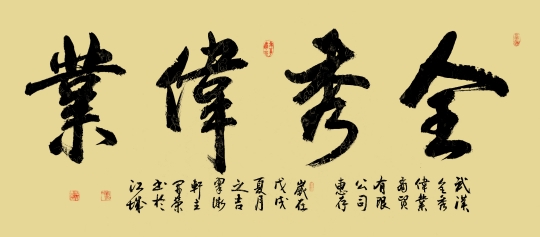 全秀偉業
武漢
全秀
偉業
商貿
有限
公司
惠存
歲在
戊戌
夏月
之吉
軒主
書於
江城